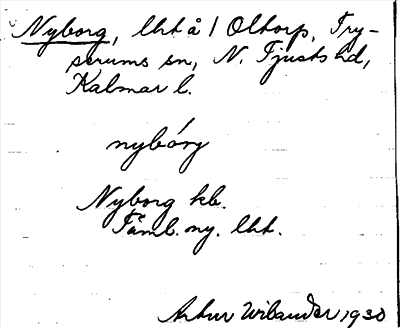 Nyborg, lht å 1 Oltorp, Try-
serums sn, N. Tjusts hd,
Kalmar l.
nybórg
Nyborg kb.
Täml. ny. lht.
Arthur Wilander 1930